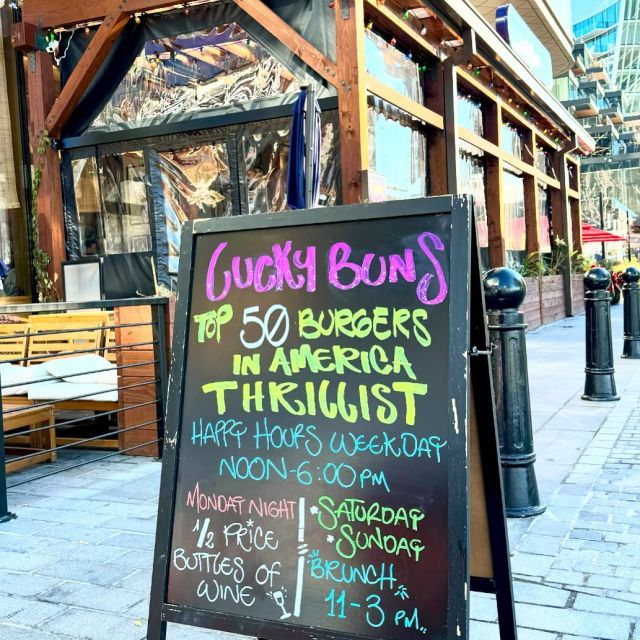 LUCKY BUNS
TOP 50 BURGERS
IN AMERICA
THRILLIST
HAPPY HOURS WEEKDAY
NOON-6:00 PM
MONDAY NIGHT
1/2 PRICE
BOTTLES OF
WINE
*SATURDAY
*SUNDAY
BRUNCH
11-3 PM